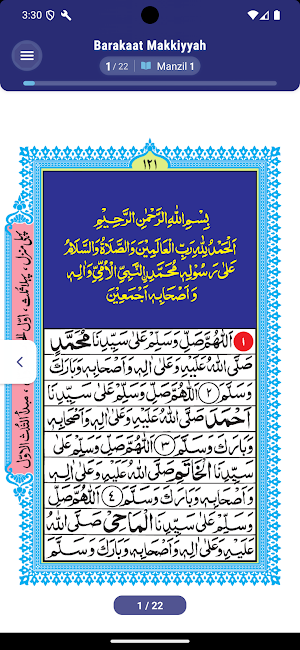 3:30
Barakaat Makkiyyah
1 / 22 Manzil 1
١٢١
بِسْمِ اللهِ الرَّحْمٰنِ الرَّحِيْمِ
اَلْحَمْدُ لِلّٰهِ رَبِّ الْعَالَمِيْنَ وَالصَّلَاةُ وَالسَّلَامُ
عَلٰى رَسُوْلِهٖ مُحَمَّدِ ࣙالنَّبِيِّ الْاُمِّيِّ وَاٰلِهٖ
وَاَصْحَابِهٖ اَجْمَعِيْنَ
١ اَللّٰهُمَّ صَلِّ وَسَلِّمْ عَلٰى سَيِّدِنَا مُحَمَّدٍ
صَلَّى اللهُ عَلَيْهِ وَعَلٰى اٰلِهٖ وَاَصْحَابِهٖ وَبَارَكَ
وَسَلَّمَ ٢ اَللّٰهُمَّ صَلِّ وَسَلِّمْ عَلٰى سَيِّدِنَا
اَحْمَدَ صَلَّى اللهُ عَلَيْهِ وَعَلٰى اٰلِهٖ وَاَصْحَابِهٖ
وَبَارَكَ وَسَلَّمَ ٣ اَللّٰهُمَّ صَلِّ وَسَلِّمْ عَلٰى
سَيِّدِنَا الْخَاتَمِ صَلَّى اللهُ عَلَيْهِ وَعَلٰى اٰلِهٖ
وَاَصْحَابِهٖ وَبَارَكَ وَسَلَّمَ ٤ اَللّٰهُمَّ صَلِّ
وَسَلِّمْ عَلٰى سَيِّدِنَا الْمَاحِيْ صَلَّى اللهُ
عَلَيْهِ وَعَلٰى اٰلِهٖ وَاَصْحَابِهٖ وَبَارَكَ وَسَلَّمَ
پہلی منزل، پہلا ثلث، اوّل
مبدأ الثلث الاوّل
1 / 22